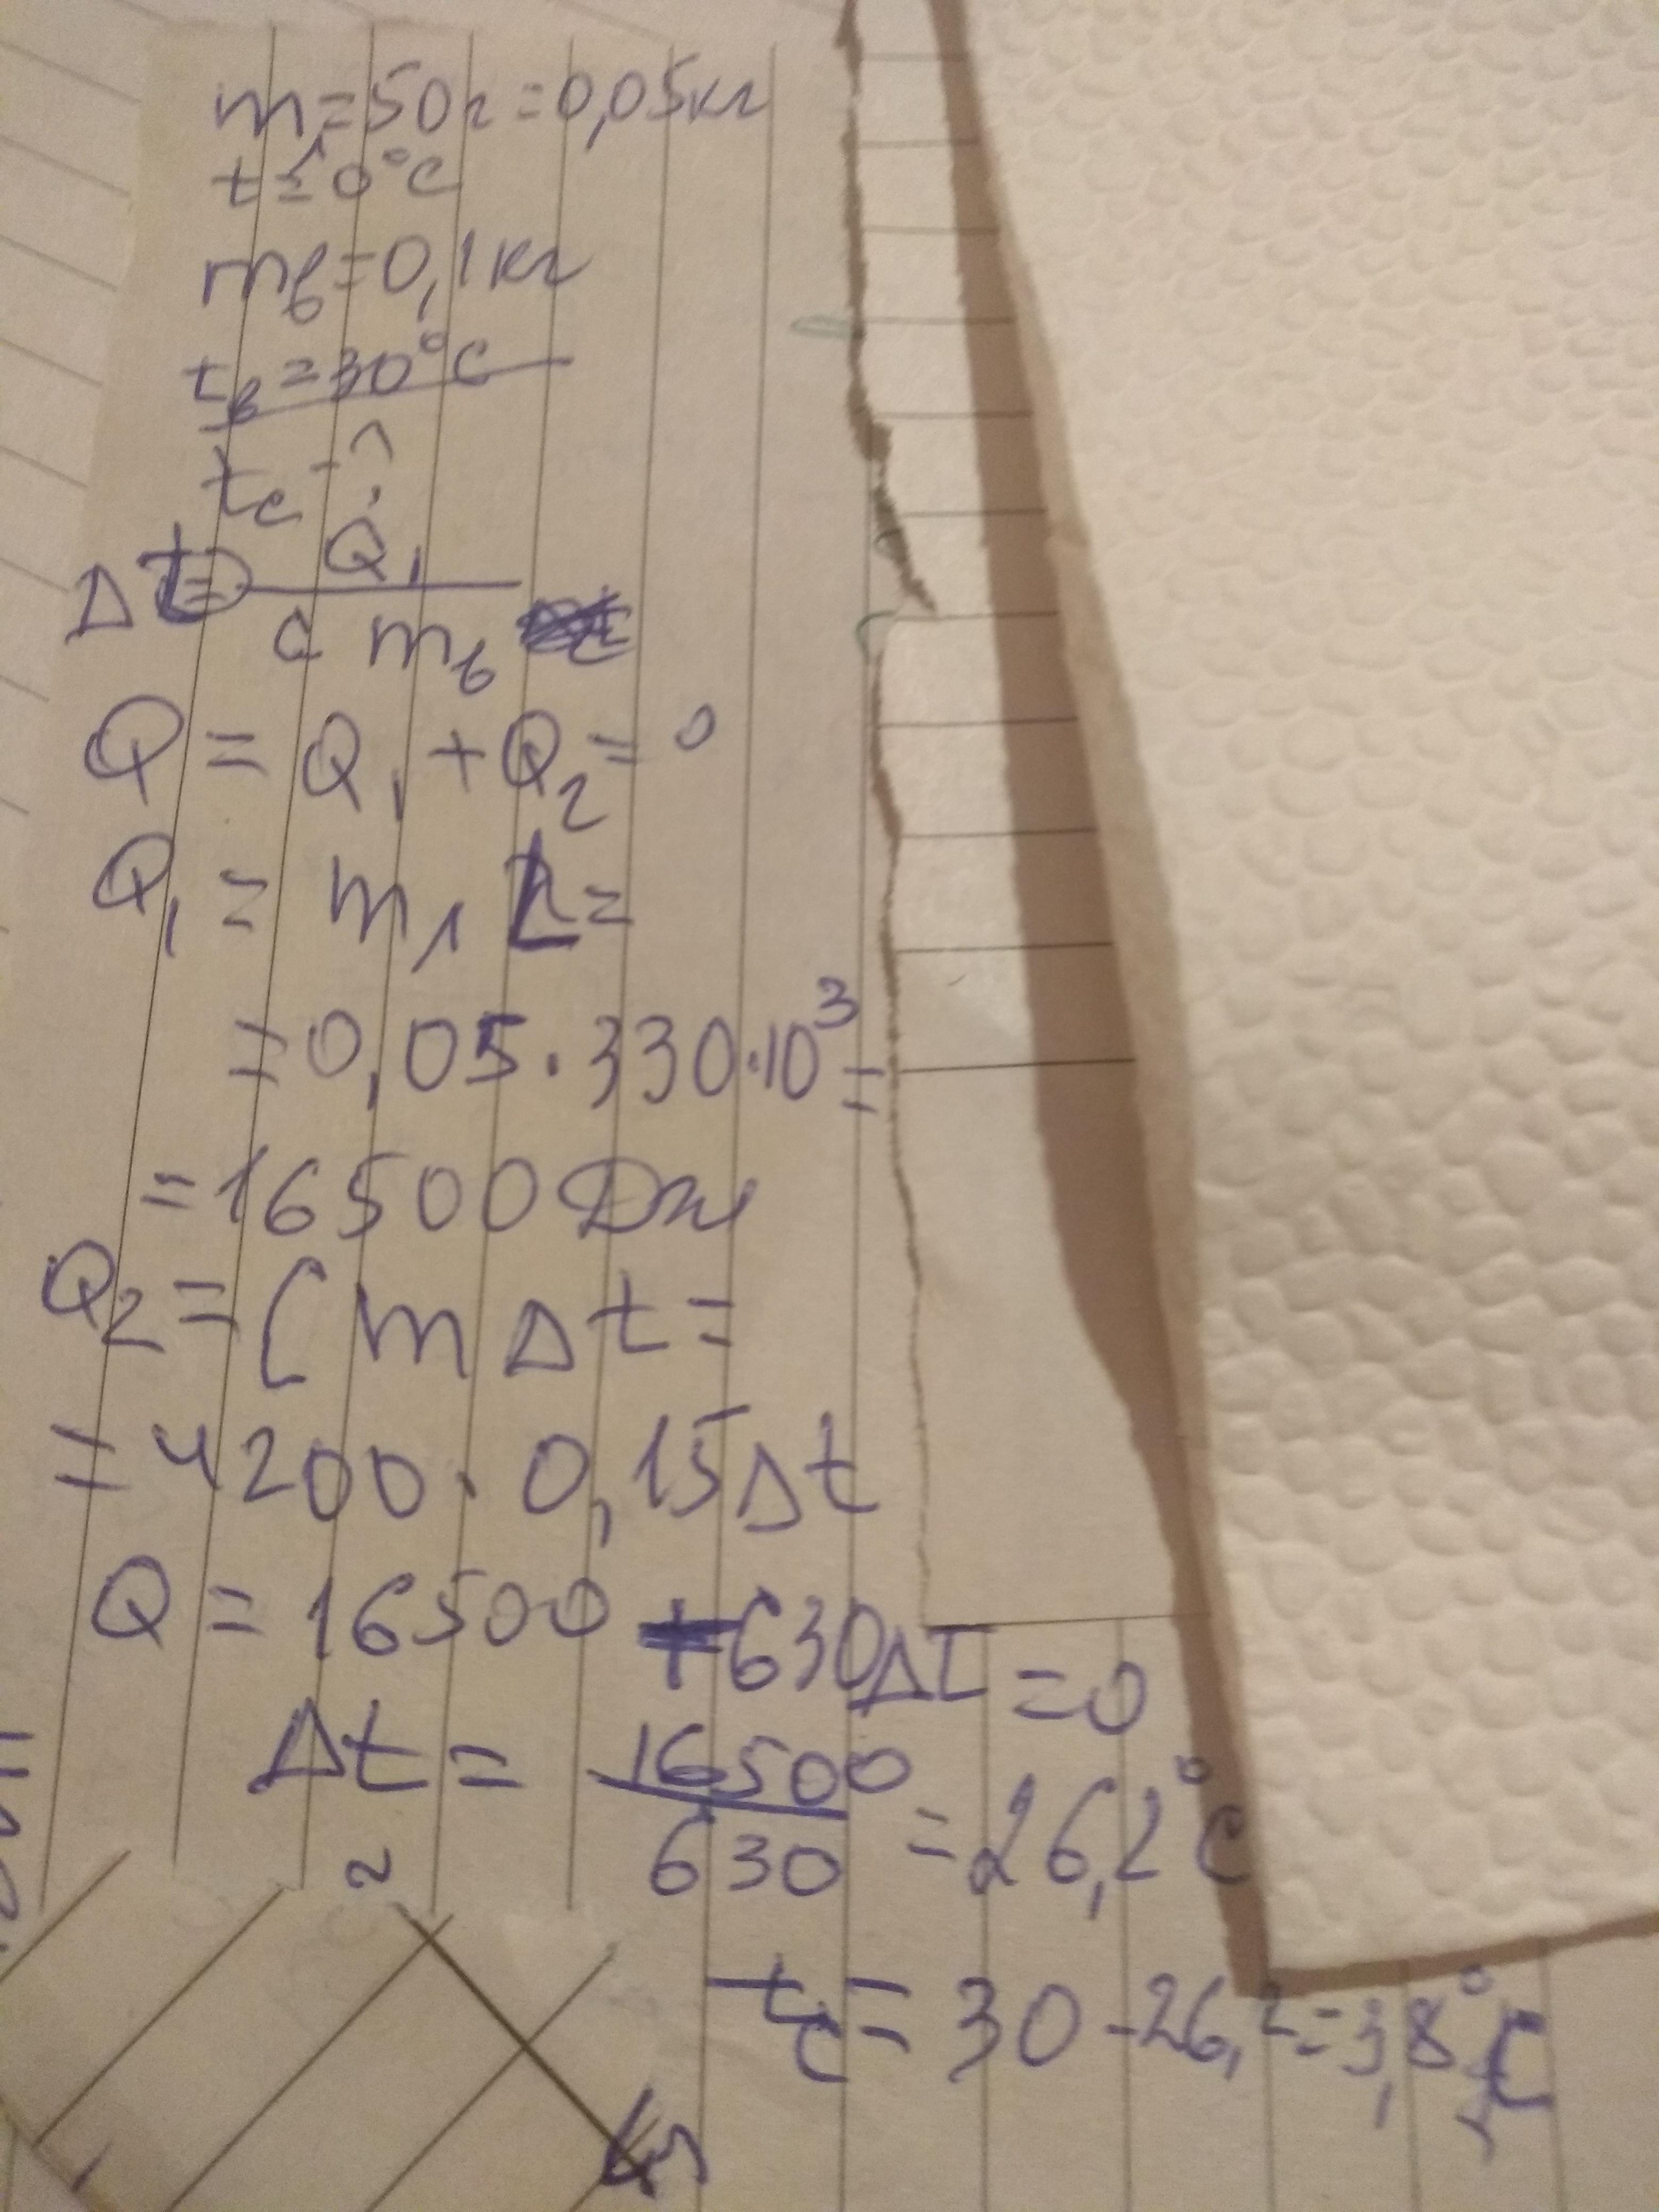 m₁=50г=0,05кг
t₁=0°C
mв=0,1кг
tв=30°C
tc-?
Δt=Q₁/(c mв)
Q=Q₁+Q₂=0
Q₁=m₁L=
=0,05·330·10³=
=16500Дж
Q₂=CmΔt=
=4200·0,15Δt
Q=16500+630Δt=0
Δt=16500/630=26,2°C
tc=30-26,2=3,8°C